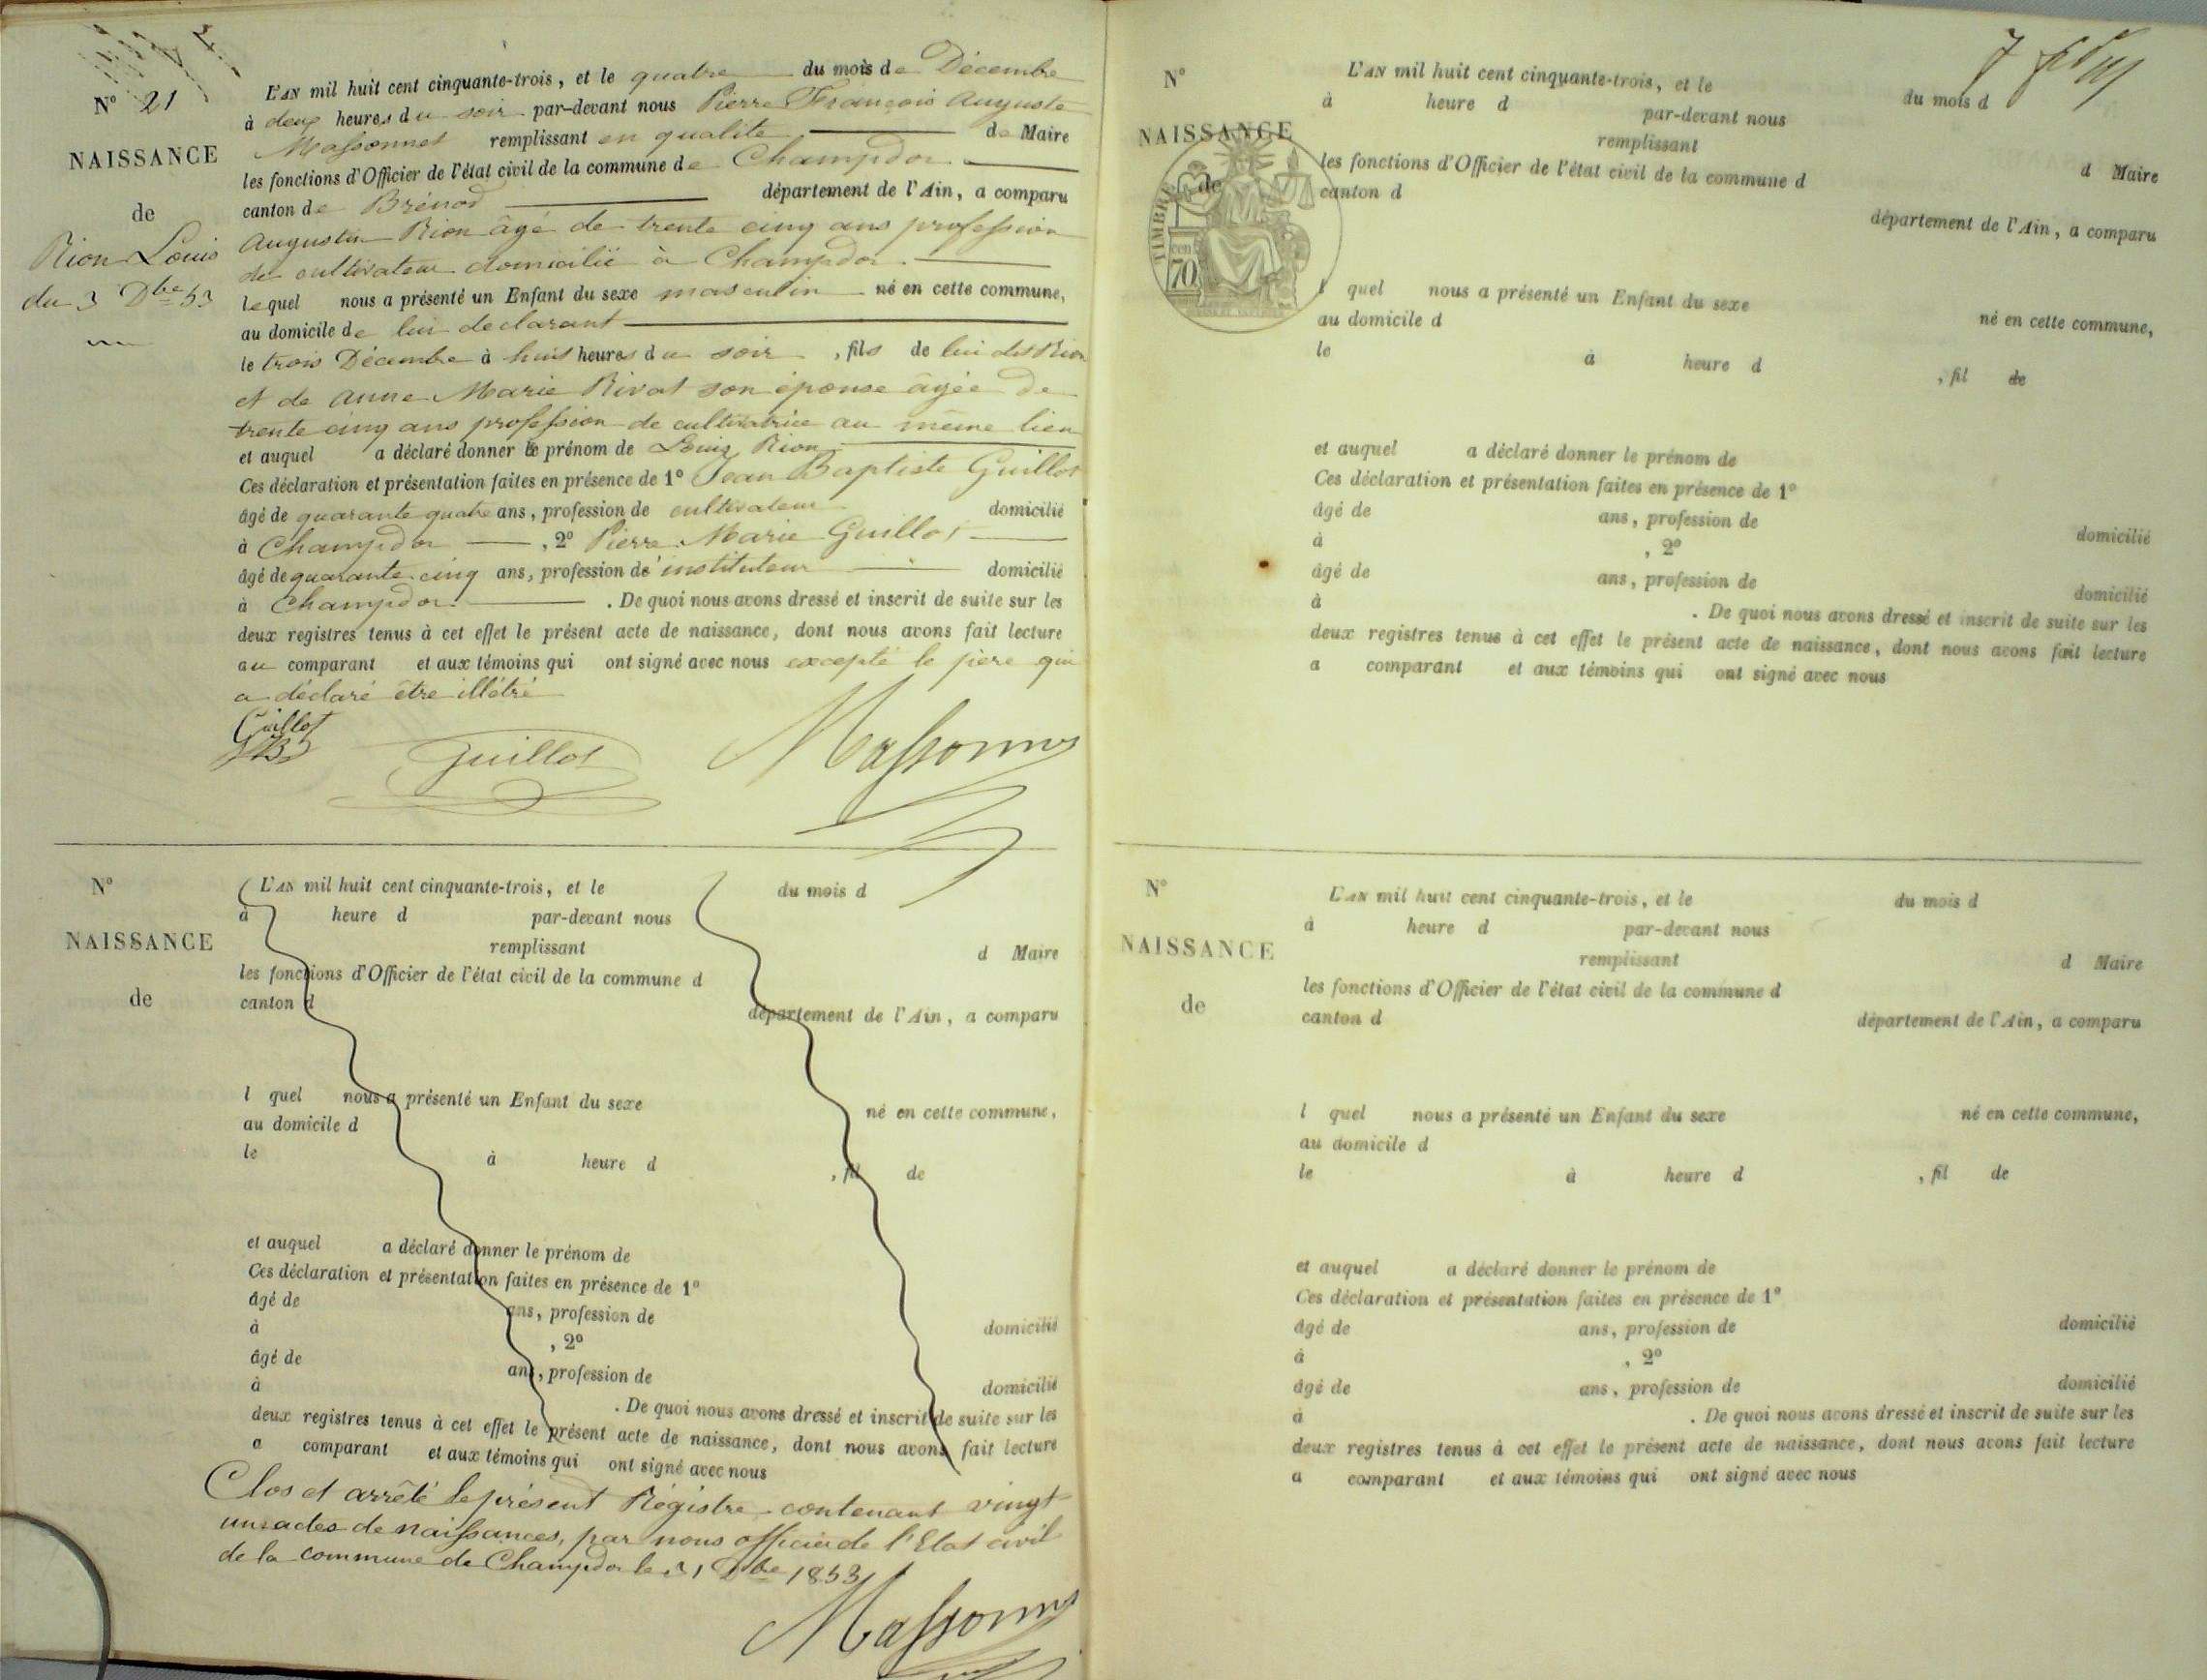 N° 21
NAISSANCE
de
Rion Louis
du 3 Dbre 53
L'AN mil huit cent cinquante-trois, et le quatre du mois de Décembre
à deux heures du soir par-devant nous Pierre François Auguste
Massonnet remplissant en qualité de Maire
les fonctions d'Officier de l'état civil de la commune de Champdor
canton de Brénod département de l'Ain, a comparu
Augustin Rion âgé de trente cinq ans profession
de cultivateur domicilié à Champdor.
lequel nous a présenté un Enfant du sexe masculin né en cette commune,
au domicile de lui déclarant
le trois Décembre à huit heures du soir, fils de lui dit Rion
et de Anne Marie Rivat son épouse âgée de
trente cinq ans profession de cultivatrice au même lieu
et auquel a déclaré donner le prénom de Louis Rion
Ces déclaration et présentation faites en présence de 1° Jean Baptiste Guillot
âgé de quarante quatre ans, profession de cultivateur domicilié
à Champdor, 2° Pierre Marie Guillot
âgé de quarante cinq ans, profession de instituteur domicilié
à Champdor. De quoi nous avons dressé et inscrit de suite sur les
deux registres tenus à cet effet le présent acte de naissance, dont nous avons fait lecture
au comparant et aux témoins qui ont signé avec nous excepté le père qui
a déclaré être illétré
Guillot
JB
Guillot
Massonnet
N°
NAISSANCE
de
L'AN mil huit cent cinquante-trois, et le du mois d
à heure d par-devant nous
remplissant d Maire
les fonctions d'Officier de l'état civil de la commune d
canton d département de l'Ain, a comparu
l quel nous a présenté un Enfant du sexe né en cette commune,
au domicile d
le à heure d , fil de
et auquel a déclaré donner le prénom de
Ces déclaration et présentation faites en présence de 1°
âgé de ans, profession de domicilié
à , 2°
âgé de ans, profession de domicilié
à . De quoi nous avons dressé et inscrit de suite sur les
deux registres tenus à cet effet le présent acte de naissance, dont nous avons fait lecture
a comparant et aux témoins qui ont signé avec nous
Clos et arrêté le présent Régistre contenant vingt
un actes de naissances, par nous officier de l'Etat civil
de la commune de Champdor le 31 Dbre 1853
Massonnet
N°
NAISSANCE
de
TIMBRE
cen
70
L'AN mil huit cent cinquante-trois, et le du mois d
à heure d par-devant nous
remplissant d Maire
les fonctions d'Officier de l'état civil de la commune d
canton d département de l'Ain, a comparu
l quel nous a présenté un Enfant du sexe né en cette commune,
au domicile d
le à heure d , fil de
et auquel a déclaré donner le prénom de
Ces déclaration et présentation faites en présence de 1°
âgé de ans, profession de domicilié
à , 2°
âgé de ans, profession de domicilié
à . De quoi nous avons dressé et inscrit de suite sur les
deux registres tenus à cet effet le présent acte de naissance, dont nous avons fait lecture
a comparant et aux témoins qui ont signé avec nous
N°
NAISSANCE
de
L'AN mil huit cent cinquante-trois, et le du mois d
à heure d par-devant nous
remplissant d Maire
les fonctions d'Officier de l'état civil de la commune d
canton d département de l'Ain, a comparu
l quel nous a présenté un Enfant du sexe né en cette commune,
au domicile d
le à heure d , fil de
et auquel a déclaré donner le prénom de
Ces déclaration et présentation faites en présence de 1°
âgé de ans, profession de domicilié
à , 2°
âgé de ans, profession de domicilié
à . De quoi nous avons dressé et inscrit de suite sur les
deux registres tenus à cet effet le présent acte de naissance, dont nous avons fait lecture
a comparant et aux témoins qui ont signé avec nous